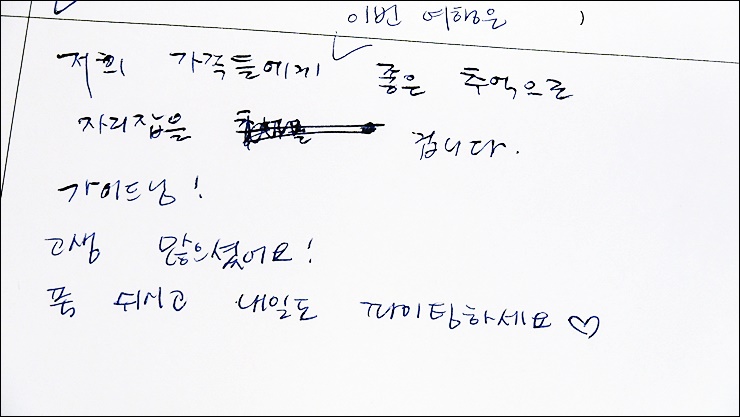 이번 여행은
저희 가족들에게 좋은 추억으로
자리잡을 겁니다.
가이드님!
고생 많으셨어요!
푹 쉬시고 내일도 파이팅하세요♡